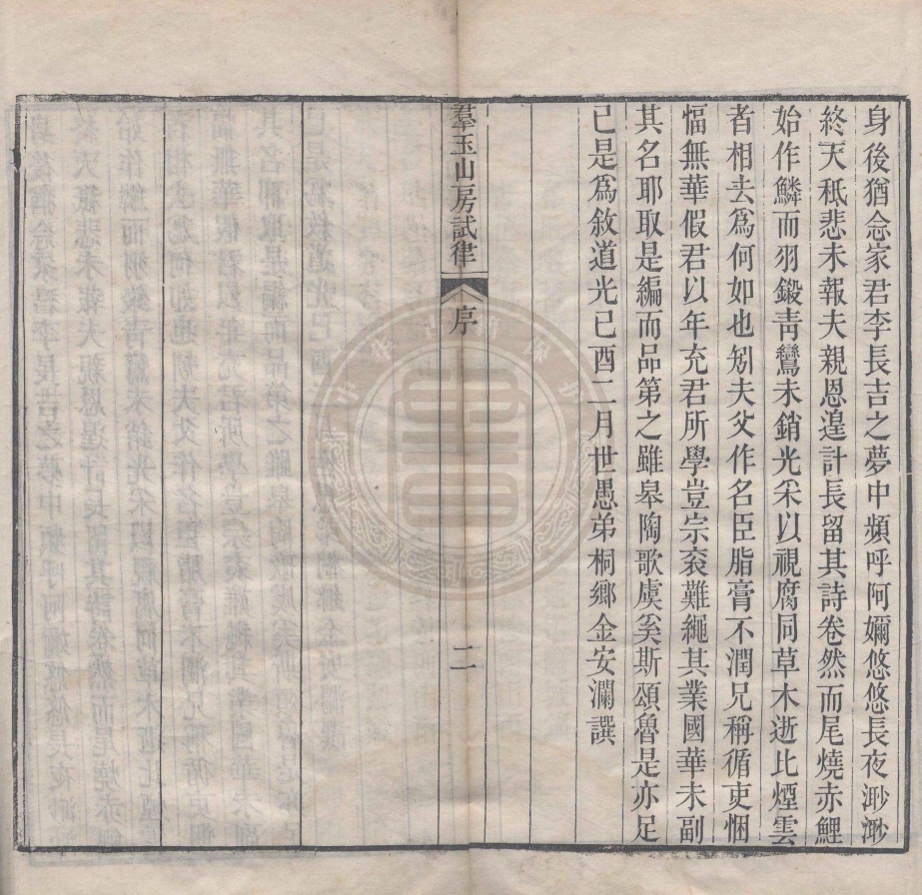 身後猶念家君李長吉之夢中頻呼阿㜷悠悠長夜渺渺
終天秪悲未報夫親恩遑計長留其詩卷然而尾燒赤鯉
始作鱗而羽鍛靑鸞未銷光采以視腐同草木逝比煙雲
者相去爲何如也矧夫父作名臣脂膏不潤兄稱循吏悃
愊無華假君以年充君所學豈宗衮難繩其業國華未副
其名耶取是編而品第之雖皋陶歌虞奚斯頌魯是亦足
已是爲敘道光己酉二月世愚弟桐鄉金安瀾譔
羣玉山房試律 序 二